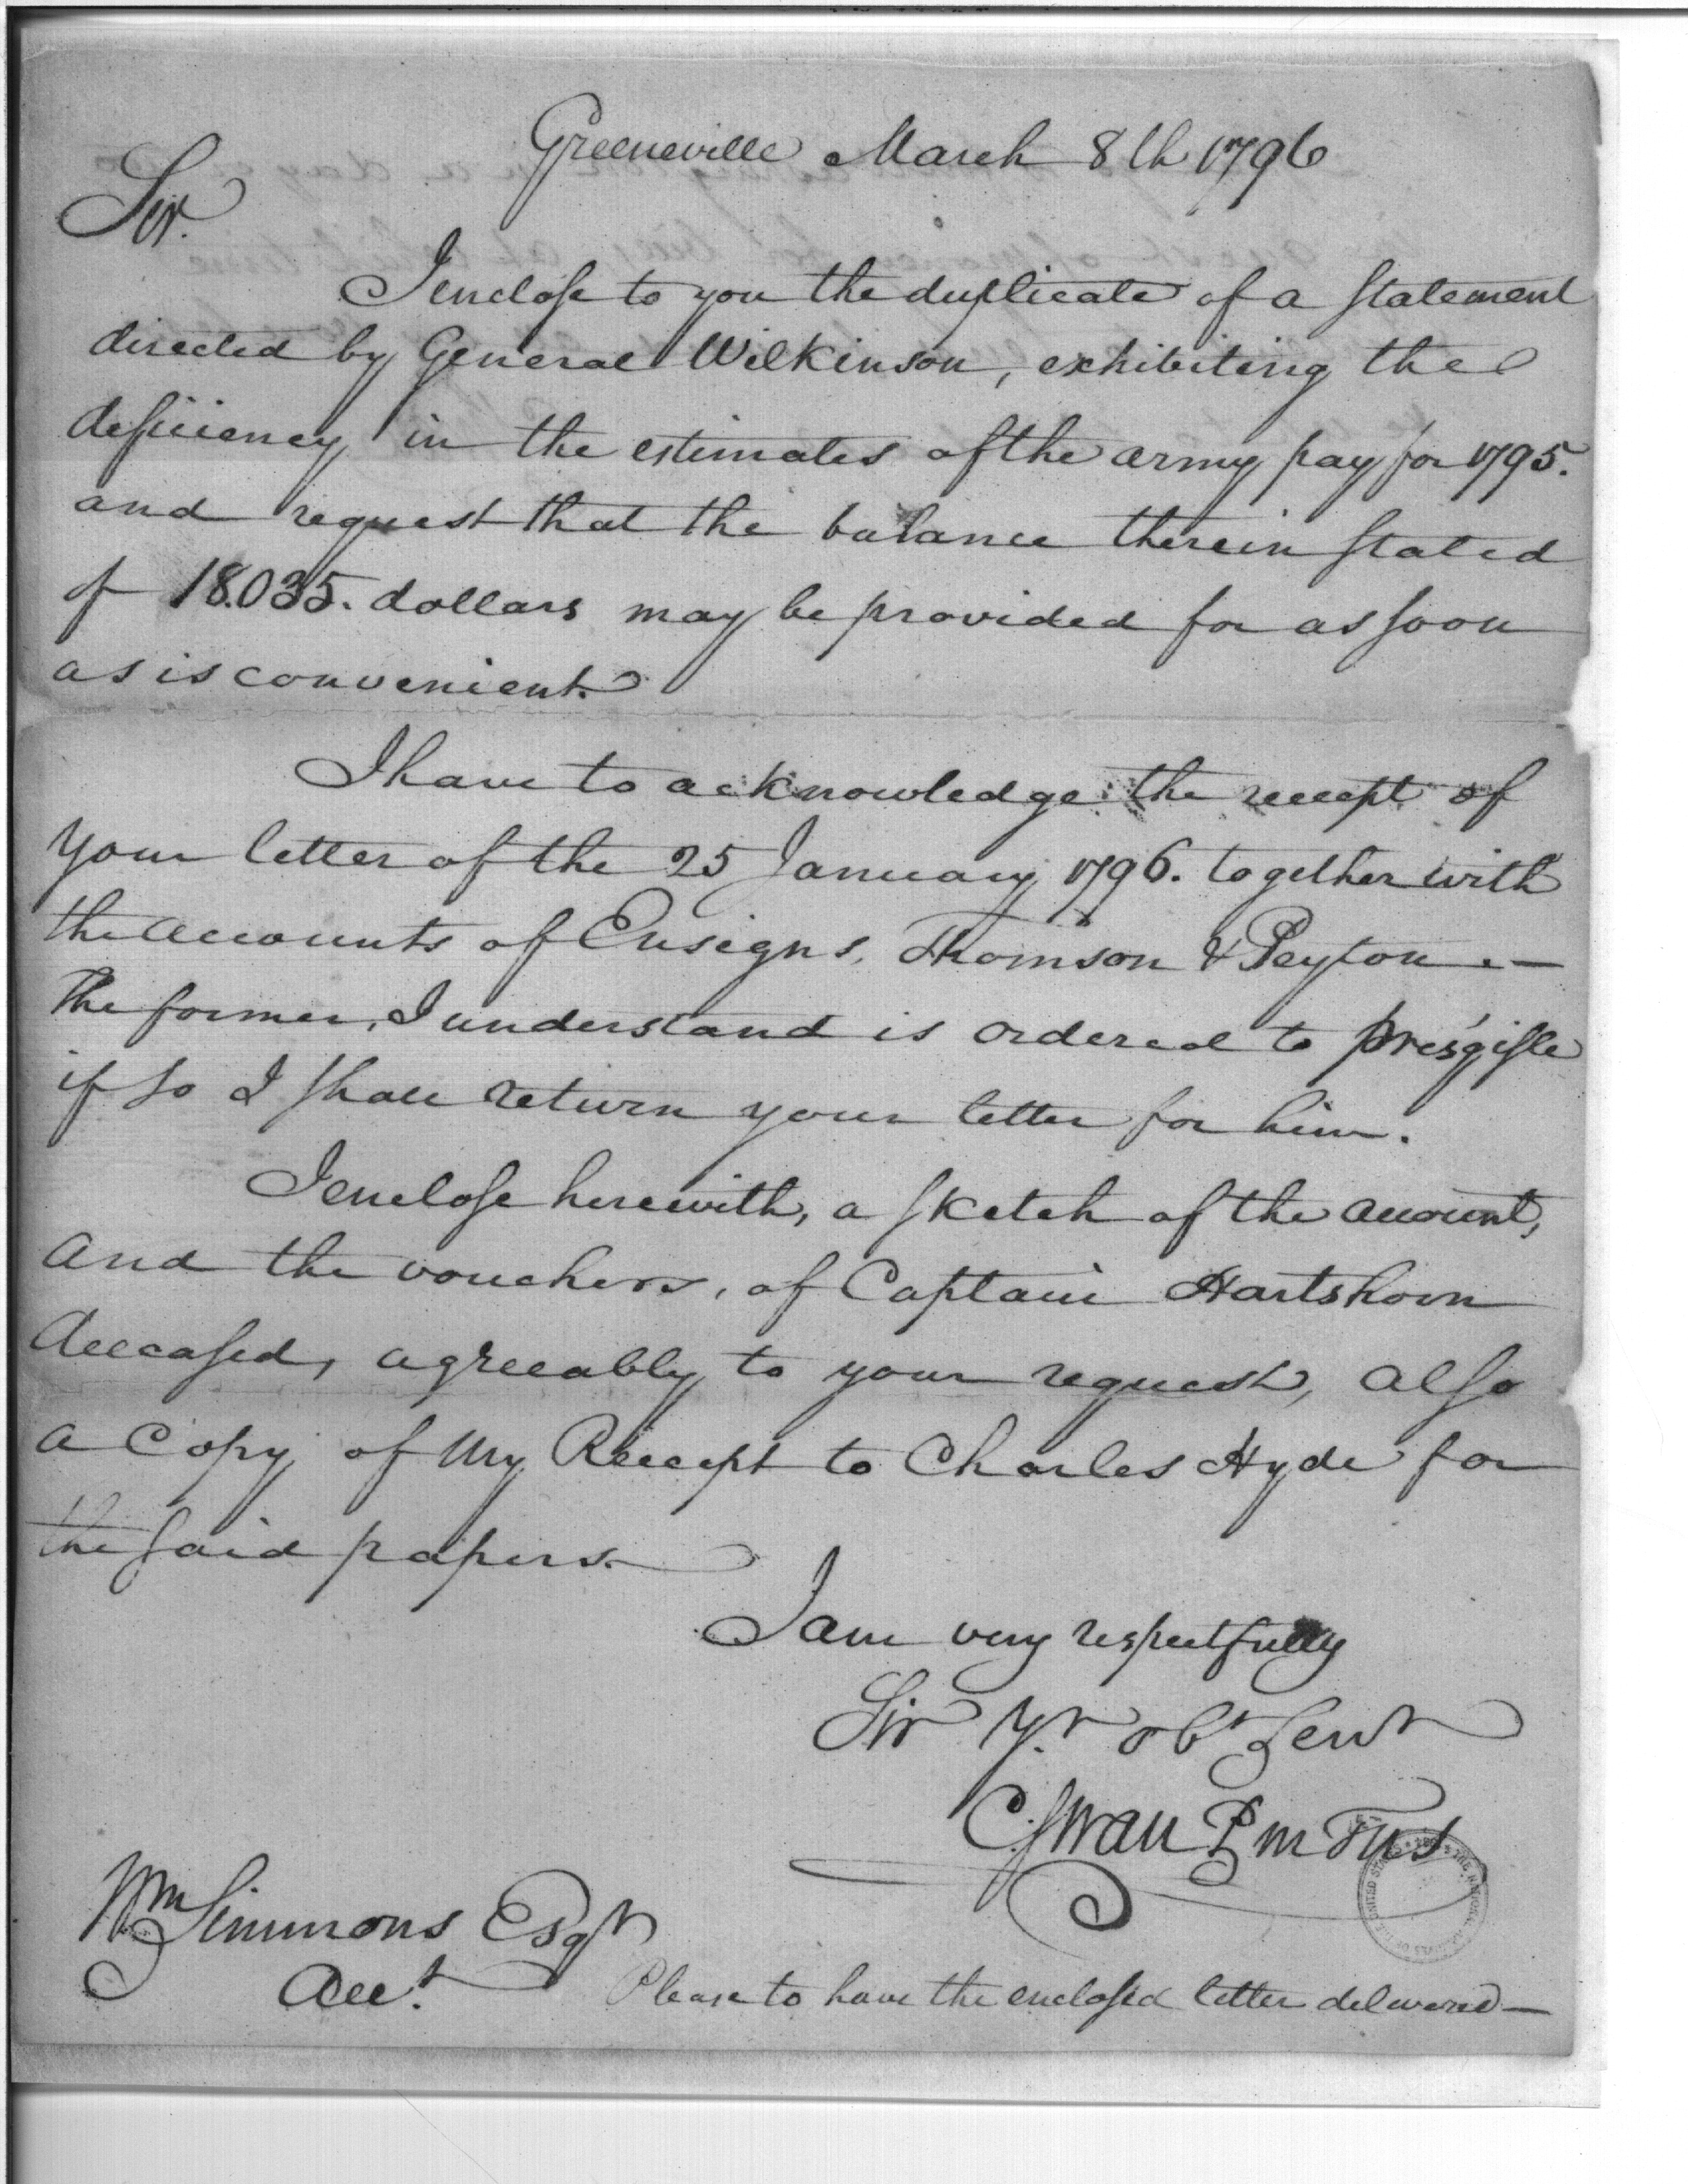 Greeneville March 8th 1796
Sir.
I enclose to you the duplicate of a statement
directed by General Wilkinson, exhibiting the
deficiency in the estimates of the army pay for 1795.
and request that the balance therein stated
of 18.035. dollars may be provided for as soon
as is convenient.
I have to acknowledge the receept of
your letter of the 25 January 1796. together with
the accounts of Ensigns, Thomson & Peyton.—
The former, I understand is ordered to Pres'qisle
if so I shall return your letter for him.
I enclose herewith, a sketch of the account,
and the vouchers, of Captain Hartshorn
deceased, agreeably to your request, also
a Copy of My Receept to Charles Hyde for
the said papers.
I am very respectfully
Sir Yr. obt Servt
C Swan P m T US
Wm Simmons Esqr
Acct.
Please to have the enclosed letter delivered—